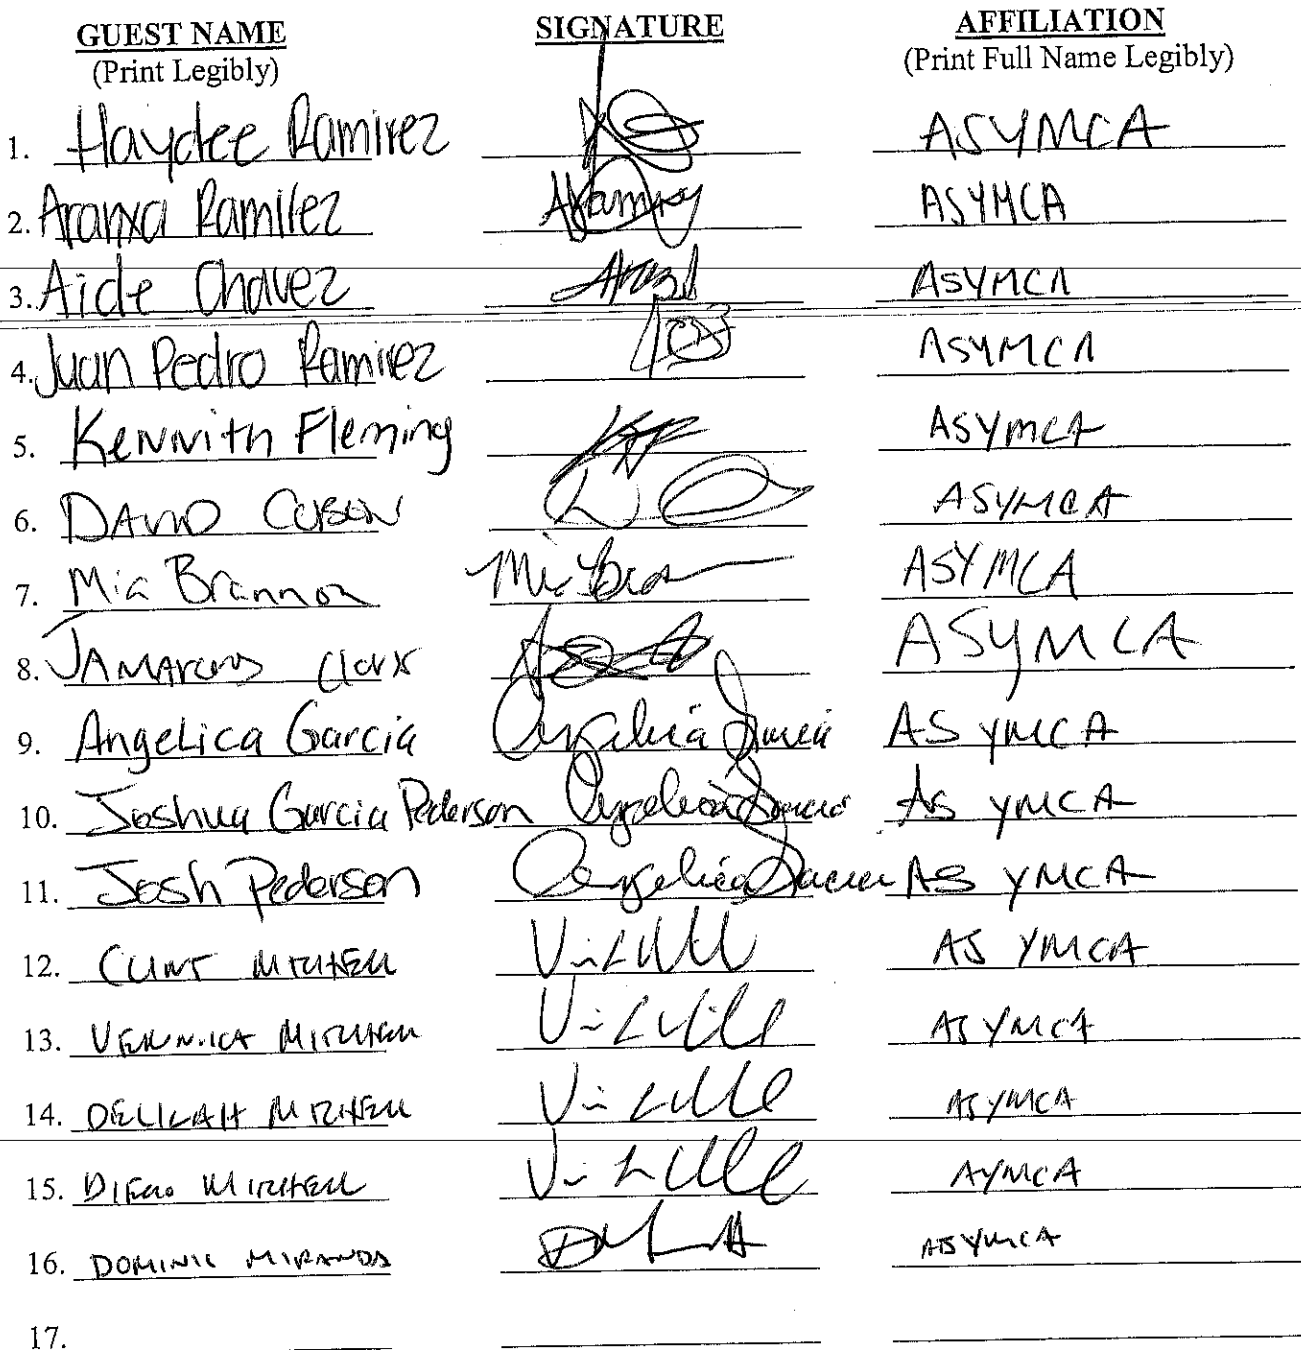 GUEST NAME SIGNATURE AFFILIATION
(Print Legibly) (Print Full Name Legibly)
1. Haydee Ramirez ASYMCA
2. Aranxa Ramirez ASYMCA
3. Aide Chavez ASYMCA
4. Juan Pedro Ramirez ASYMCA
5. Kennith Fleming ASYMCA
6. DAVID ASYMCA
7. Mia Brannon ASYMCA
8. JAMARCUS Clark ASYMCA
9. Angelica Garcia Angelica Garcia AS YMCA
10. Joshua Garcia Pederson Angelica Garcia AS YMCA
11. Josh Pederson Angelica Garcia AS YMCA
12. CLINT MITCHELL AS YMCA
13. VERONICA MITCHELL AS YMCA
14. DELILAH MITCHELL ASYMCA
15. DIEGO MITCHELL AYMCA
16. DOMINIC MIRANDA ASYMCA
17.